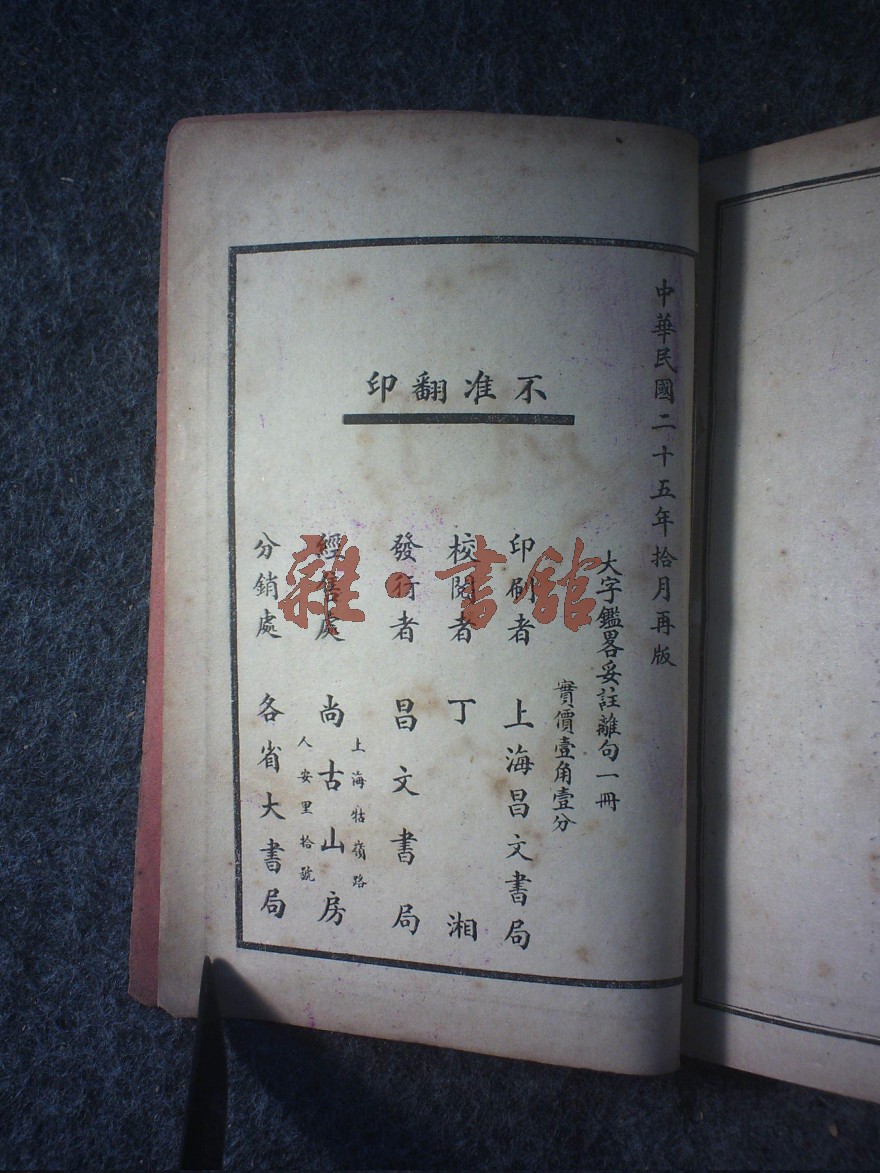 中華民國二十五年拾月再版
大字鑑畧妥註離句一冊
實價壹角壹分
不准翻印
印刷者 上海昌文書局
校閱者 丁湘
發行者 昌文書局
經售處 尚古山房
上海牯嶺路
人安里拾號
分銷處 各省大書局
雜·書館